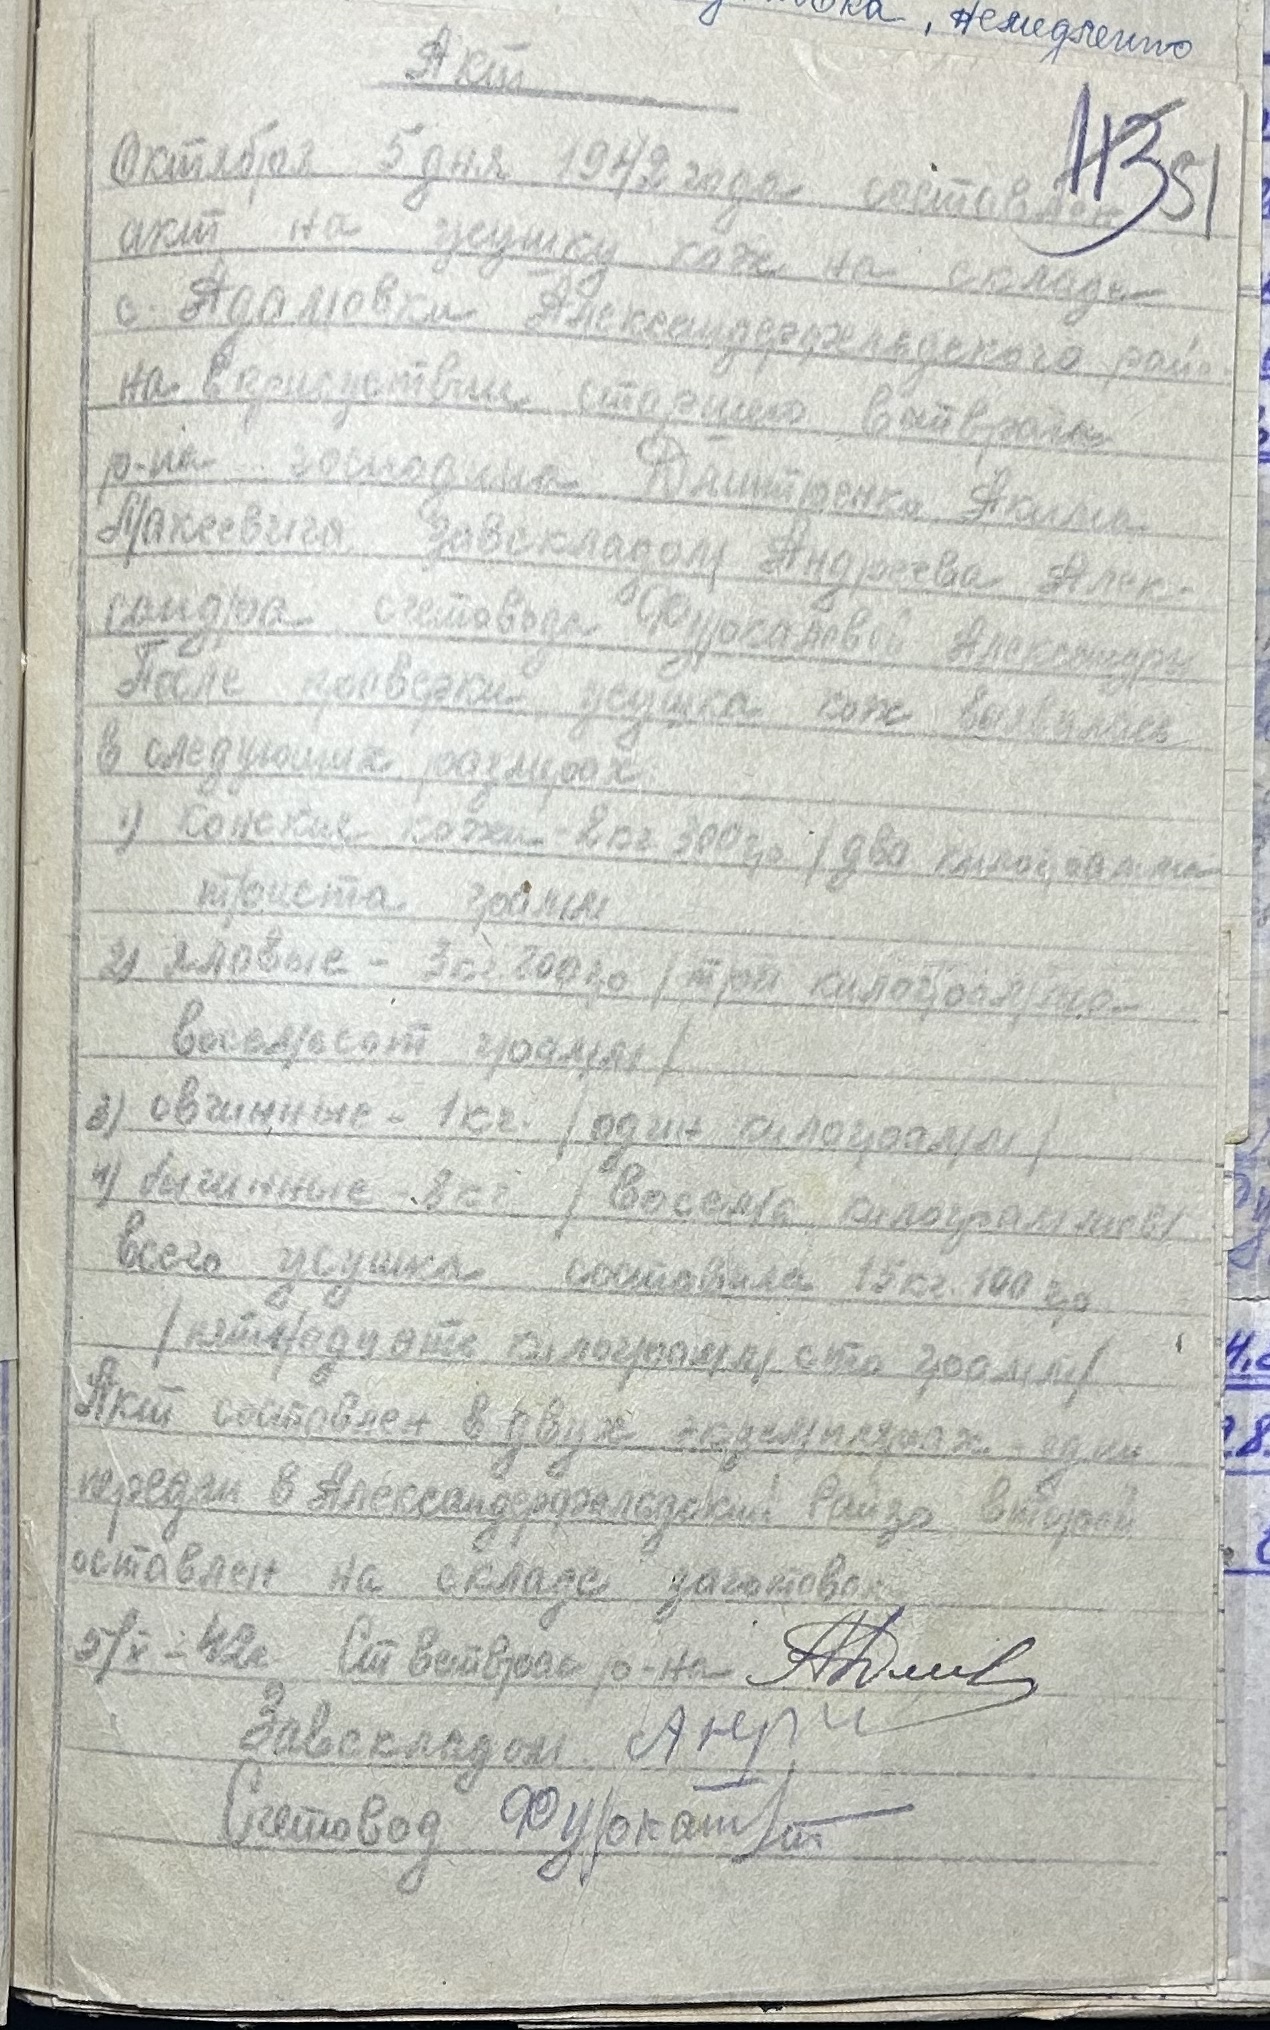 , немедленно
Акт
113 51
Октября 5 дня 1942 года составлен
акт на усушку кож на складе
с. Адамовки Александерфельдского райо-
на в присутствии старшего ветврача
р-на господина Дмитренко Акима
Макеевича Завскладом Андреева Алек-
сандра счетовода Александры
После проверки усушка кож выявилась
в следующих размерах:
1) Конские кожи - 2 кг 300 гр /два килограмма
триста грамм
2) яловые - 3 кг. 800 гр /три килограмма
восемьсот грамм/
3) овчинные - 1 кг. /один килограмм/
4) бычинные - 8 кг /восемь килограммов/
всего усушка составила 15 кг. 100 гр
/пятнадцать килограмм сто грамм/
Акт составлен в двух экземплярах - один
передан в Александерфельдский Райзо второй
оставлен на складе заготовок
5/X - 42г Ст ветврач р-на
Завскладом
Счетовод